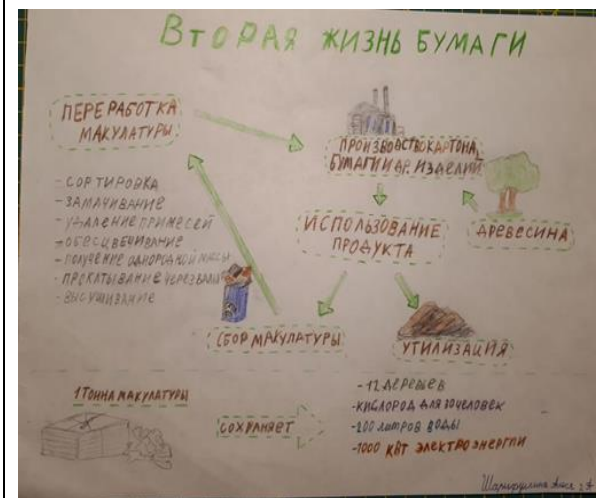 ВТОРАЯ ЖИЗНЬ БУМАГИ
ПЕРЕРАБОТКА
МАКУЛАТУРЫ
- СОРТИРОВКА
- ЗАМАЧИВАНИЕ
- УДАЛЕНИЕ ПРИМЕСЕЙ
- ОБЕСЦВЕЧИВАНИЕ
- ПОЛУЧЕНИЕ ОДНОРОДНОЙ МАССЫ
- ПРОКАТЫВАНИЕ ЧЕРЕЗ ВАЛЫ
- ВЫСУШИВАНИЕ
ПРОИЗВОДСТВО КАРТОНА,
БУМАГИ И ДР. ИЗДЕЛИЙ
ДРЕВЕСИНА
ИСПОЛЬЗОВАНИЕ
ПРОДУКТА
СБОР МАКУЛАТУРЫ
УТИЛИЗАЦИЯ
1 ТОННА МАКУЛАТУРЫ
СОХРАНЯЕТ
- 12 ДЕРЕВЬЕВ
- КИСЛОРОД ДЛЯ 30 ЧЕЛОВЕК
- 200 ЛИТРОВ ВОДЫ
- 1000 КВТ ЭЛЕКТРОЭНЕРГИИ